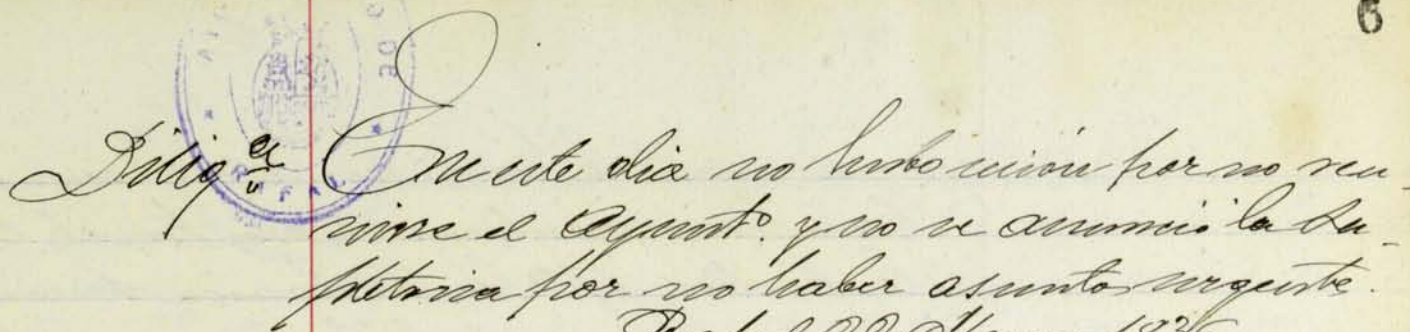 6
Dilig.ª En este dia no hubo sesión por no reu-
nirse el Ayunt.º y no se anunció la su-
pletoria por no haber asunto urgente.
Rafal